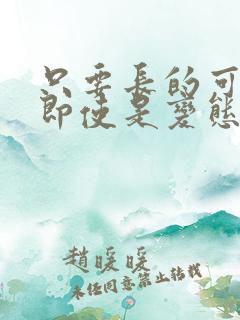 只要長的可
即使是變態
趙暖暖
未任同意禁止轉載